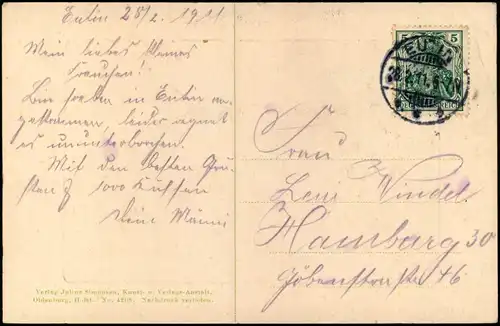 Eutin 28/2. 1911
Mein liebes kleines
Frauchen!
Bin soeben in Eutin an-
gekommen, leider regnet
es ununterbrochen.
Mit den besten Grü-
ßen & 1000 Küssen
Dein Männi
5 5
EUTIN
REICH
Frau
Leni Windel
Hamburg 30
Göbenstraße 46
Verlag Julius Simonsen, Kunst- u. Verlags-Anstalt,
Oldenburg, H.-Nr. No. 4209. Nachdruck verboten.